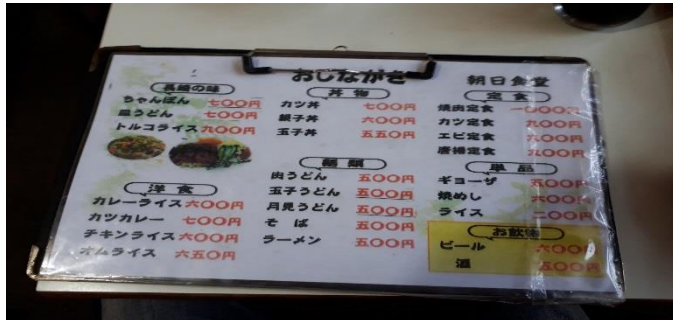 おしながき
朝日食堂
長崎の味
ちゃんぽん 七〇〇円
皿うどん 七〇〇円
トルコライス 九〇〇円
洋食
カレーライス 六〇〇円
カツカレー 七〇〇円
チキンライス 六〇〇円
オムライス 六五〇円
丼物
カツ丼 七〇〇円
親子丼 六〇〇円
玉子丼 五五〇円
麺類
肉うどん 五〇〇円
玉子うどん 五〇〇円
月見うどん 五〇〇円
そば 五〇〇円
ラーメン 五〇〇円
定食
焼肉定食 一〇〇〇円
カツ定食 九〇〇円
エビ定食 九〇〇円
唐揚定食 九〇〇円
単品
ギョーザ 五〇〇円
焼めし 六〇〇円
ライス 二〇〇円
お飲物
ビール 六〇〇円
酒 五〇〇円